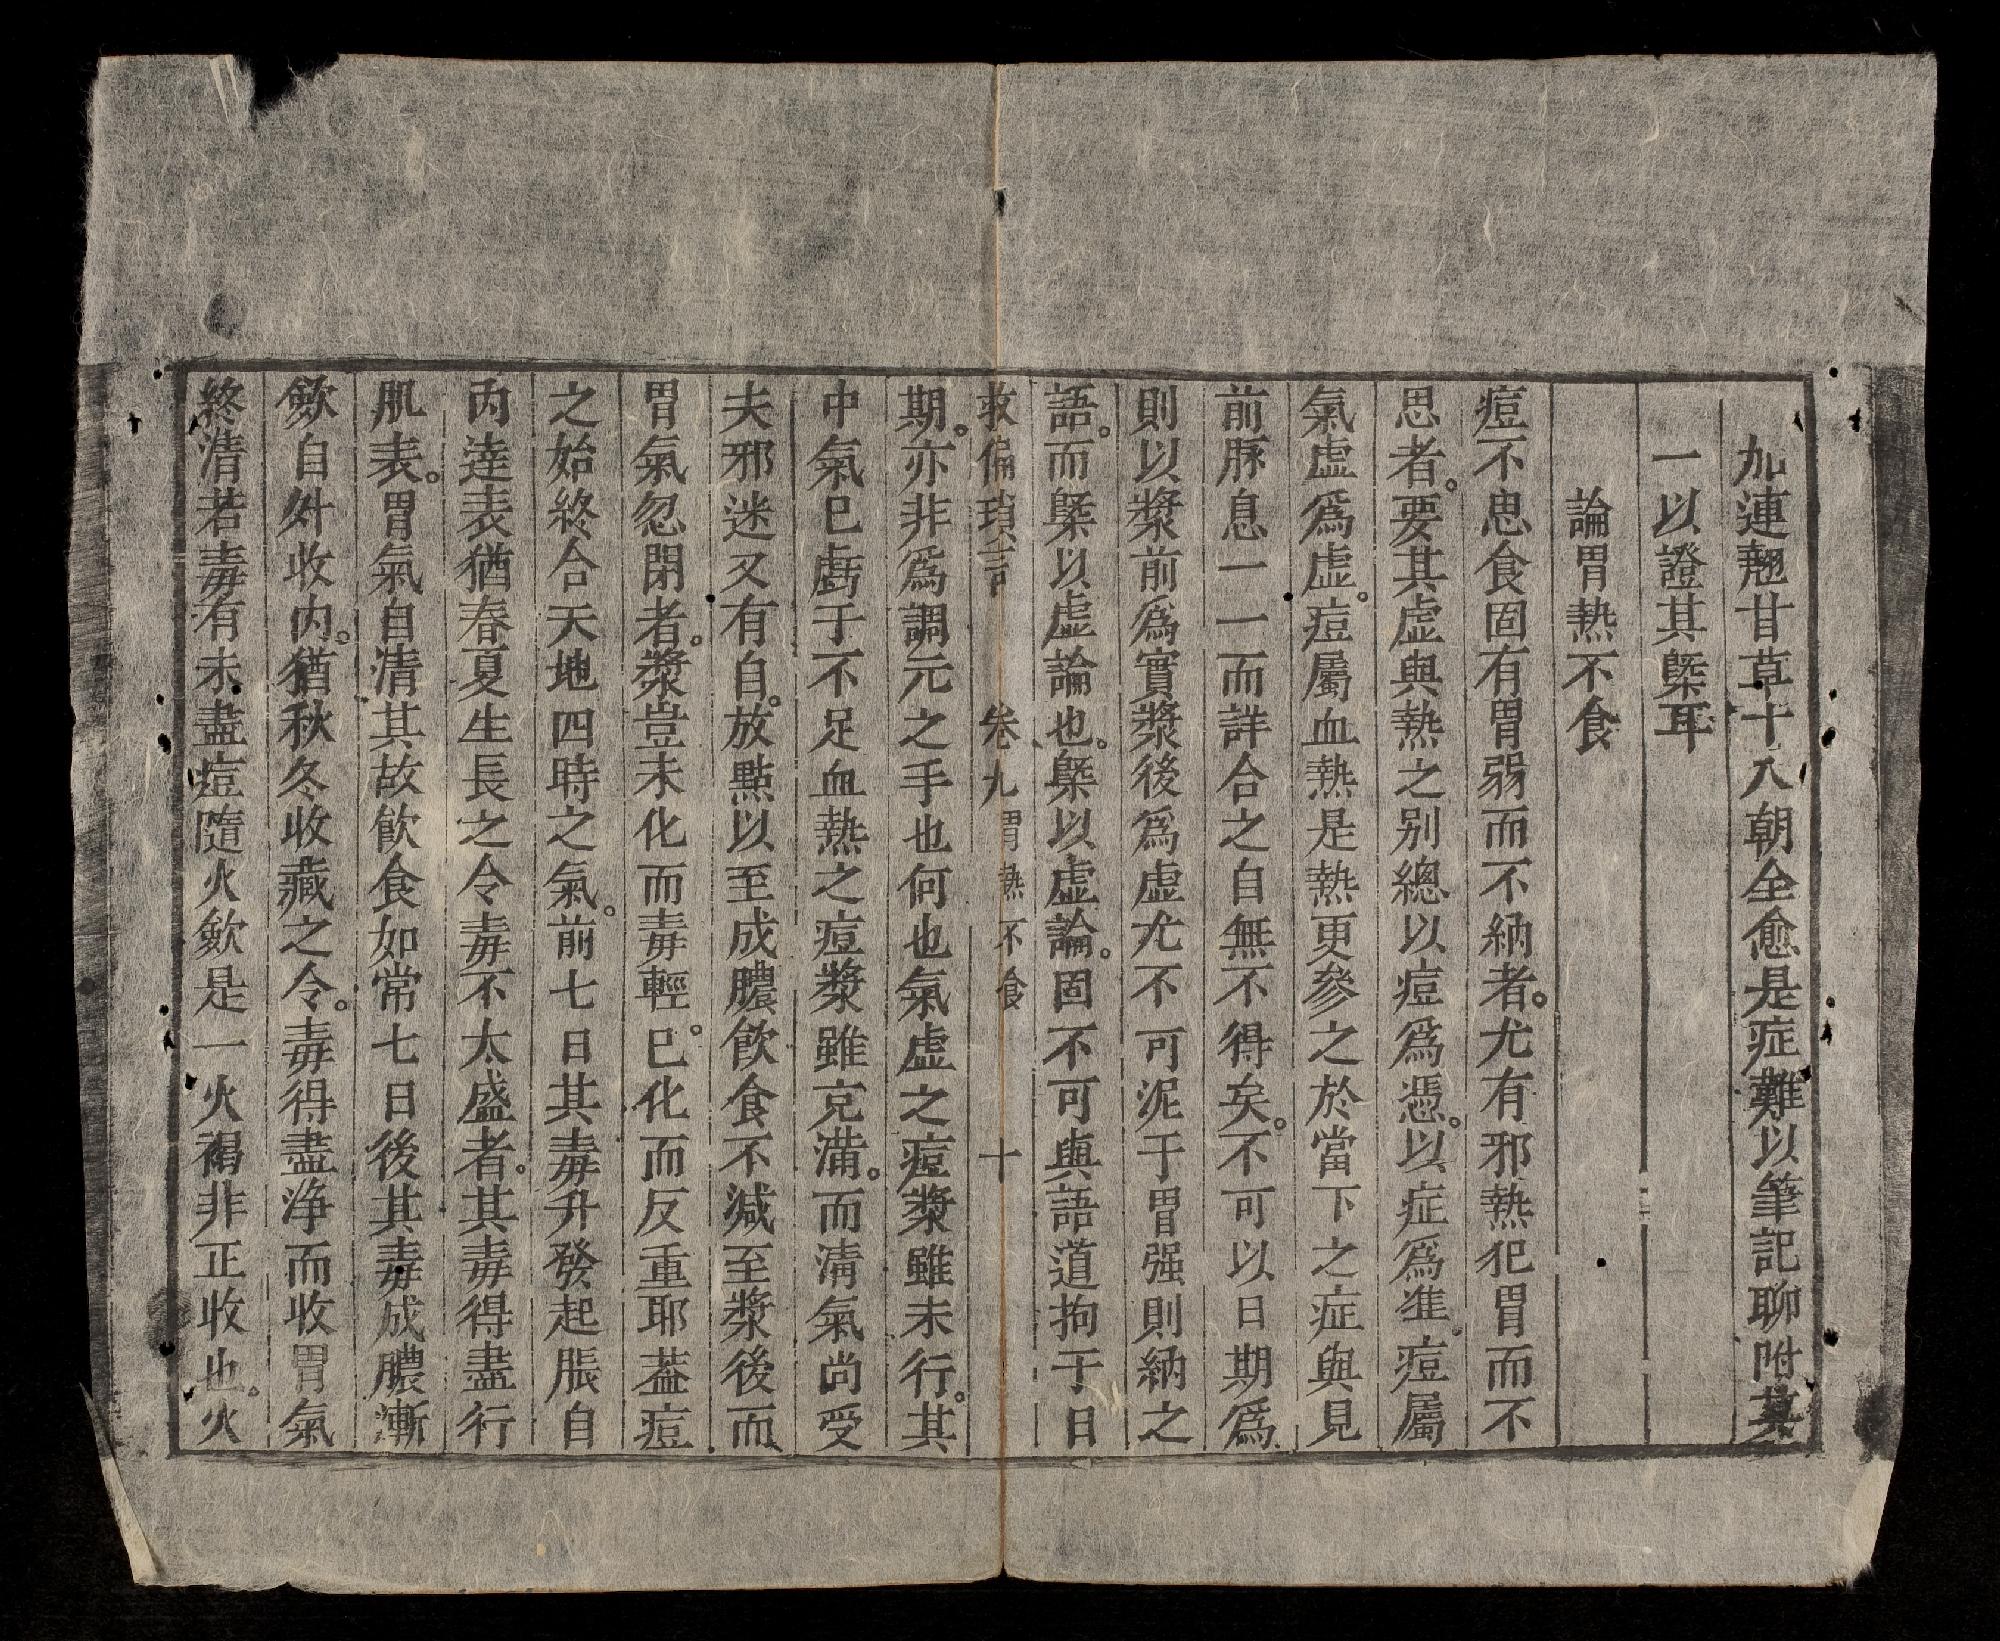 加連翹甘草十八朝全愈是症難以筆記聊附其
一以證其槩耳
論胃熱不食
痘不思食固有胃弱而不納者。尤有邪熱犯胃而不
思者。要其虛與熱之别總以痘爲憑。以症爲準。痘屬
氣虛爲虛。痘屬血熱是熱更參之於當下之症與見
前脈息一一而詳合之自無不得矣。不可以日期爲
則以漿前爲實漿後爲虛尤不可泥于胃强則納之
語。而槩以虛論也。槩以虛論。固不可與語道拘于日
救偏瑣言 卷九 胃熱不食 十
期。亦非爲調元之手也何也氣虛之痘漿雖未行。其
中氣已虧于不足血熱之痘漿雖充滿。而淸氣尚受
夫邪迷又有自。放點以至成膿飲食不減至漿後而
胃氣忽閉者。漿豈未化而毒輕。已化而反重耶葢痘
之始終合天地四時之氣。前七日其毒升發起脹自
内逹表猶春夏生長之令毒不太盛者。其毒得盡行
肌表。胃氣自清其故飲食如常七日後其毒成膿漸
斂自外收内。猶秋冬收藏之令。毒得盡淨而收胃氣
終清若毒有未盡痘隨火斂是一火褐非正收也。火